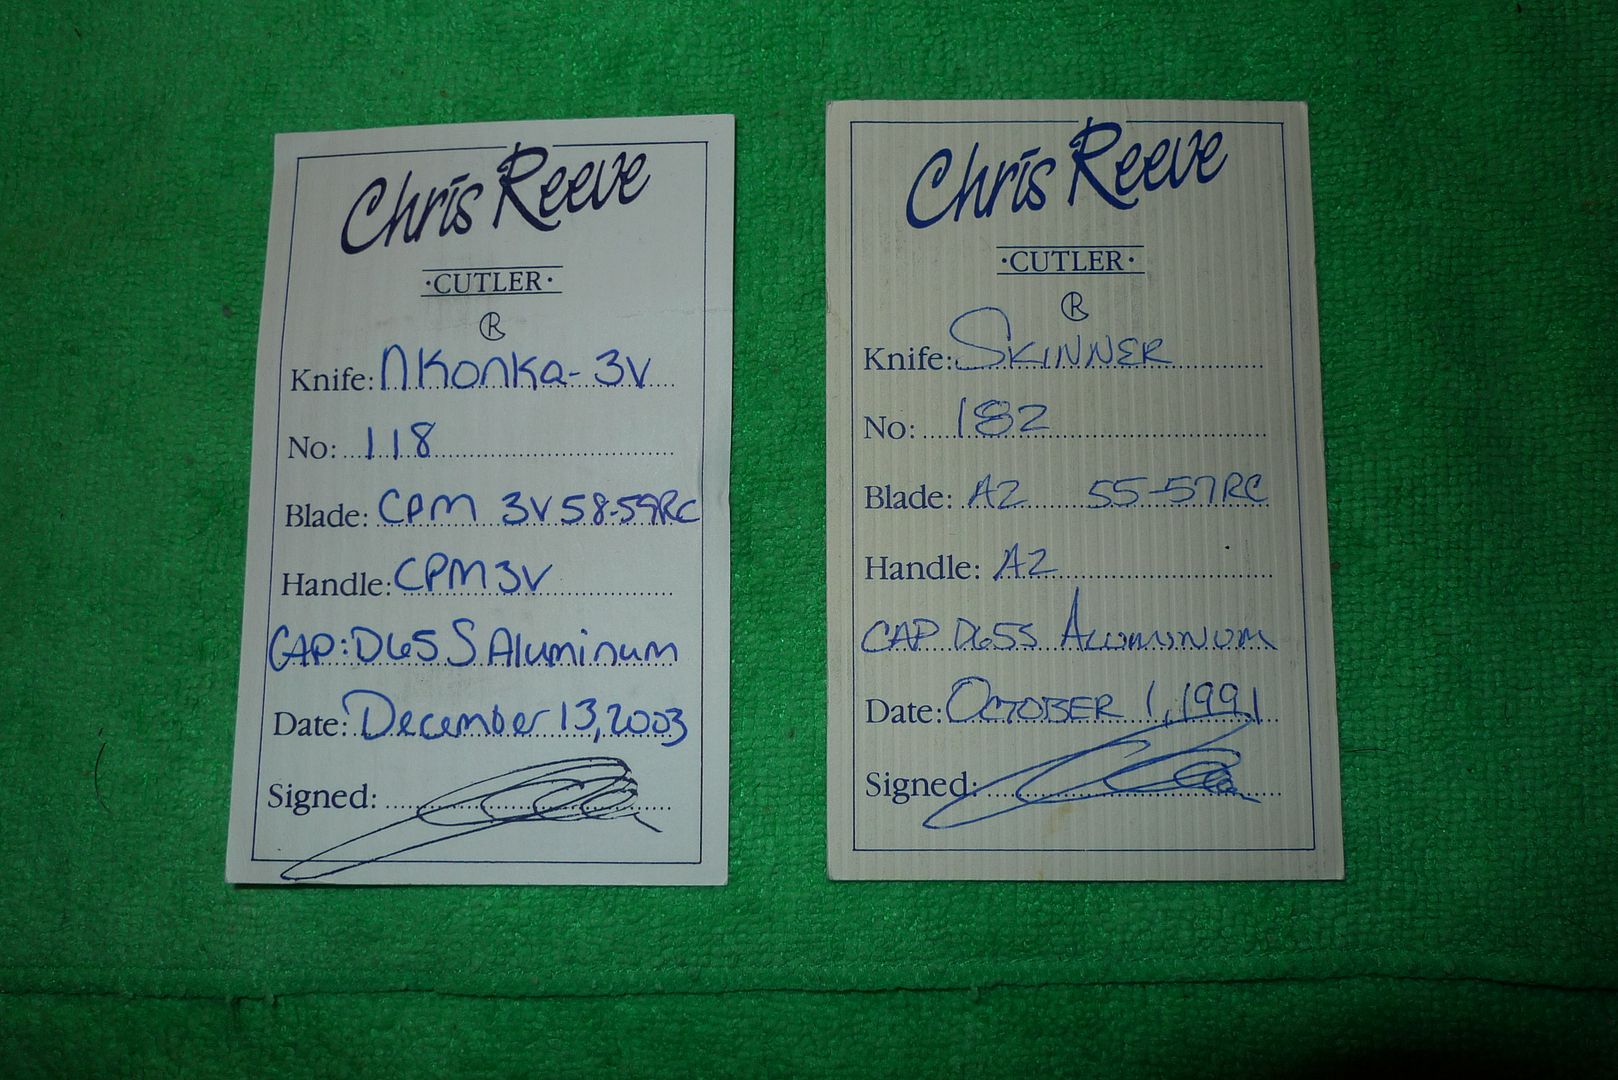 Chris Reeve
·CUTLER·
CR
Knife: Nkonka-3V
No: 118
Blade: CPM 3V 58-59RC
Handle: CPM 3V
CAP: D65 S Aluminum
Date: December 13, 2003
Signed:
Chris Reeve
·CUTLER·
CR
Knife: SKINNER
No: 182
Blade: A2 55-57RC
Handle: A2
CAP D65S ALUMINUM
Date: OCTOBER 1, 1991
Signed: